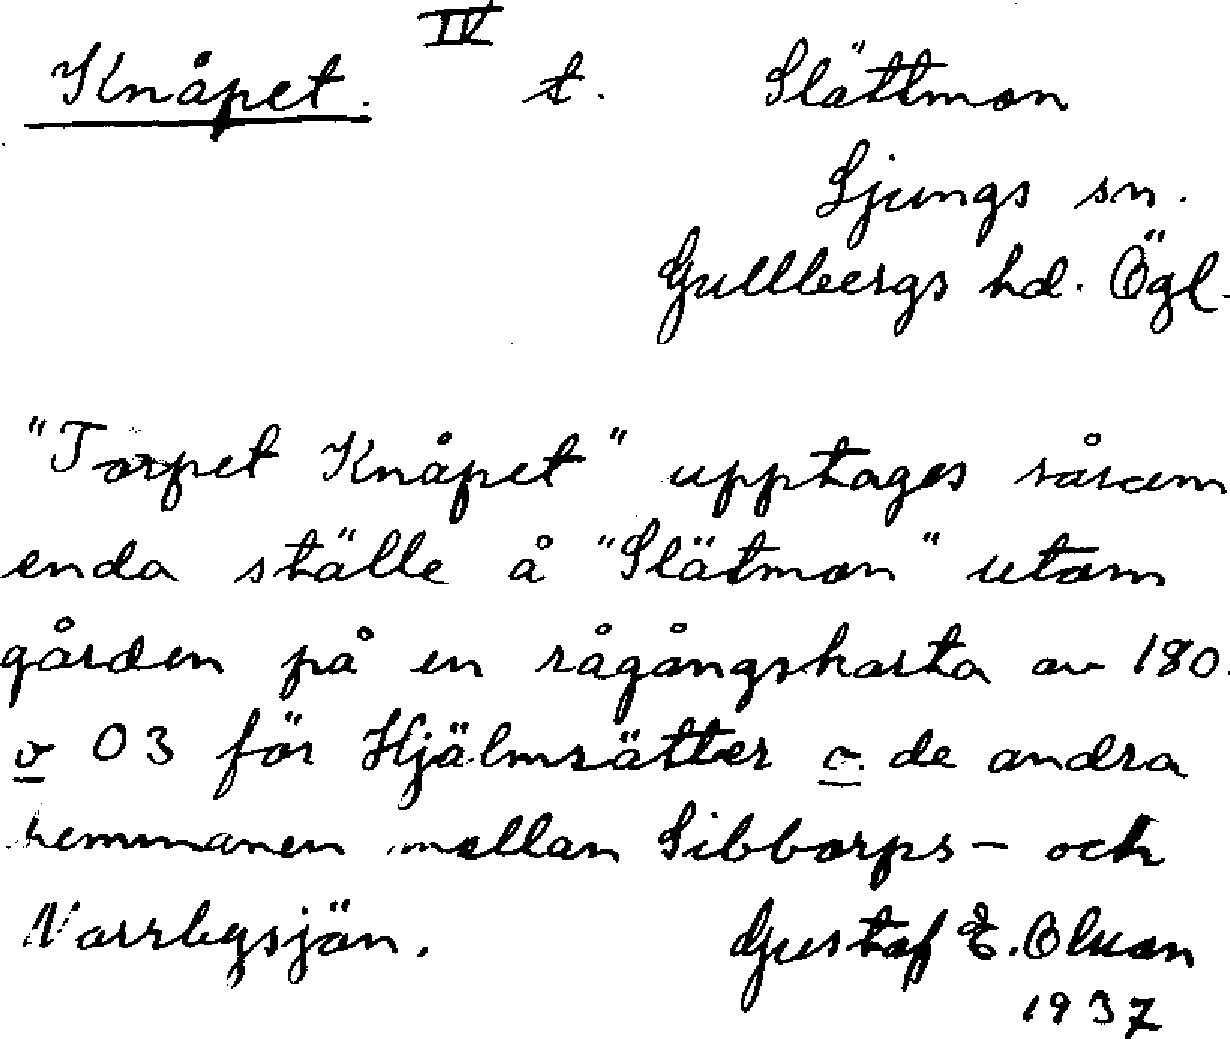 IV
Knåpet. t. Slättmon
Ljungs sn.
Gullbergs hd. Ögl.
"Torpet Knåpet" upptages såsom
enda ställe å "Slätmon" utom
gården på en rågångskarta av 180.
o 03 för Hjälmsätter o. de andra
hemmanen mellan Sibborps- och
Norrbysjön. Gustaf E. Olson
1937